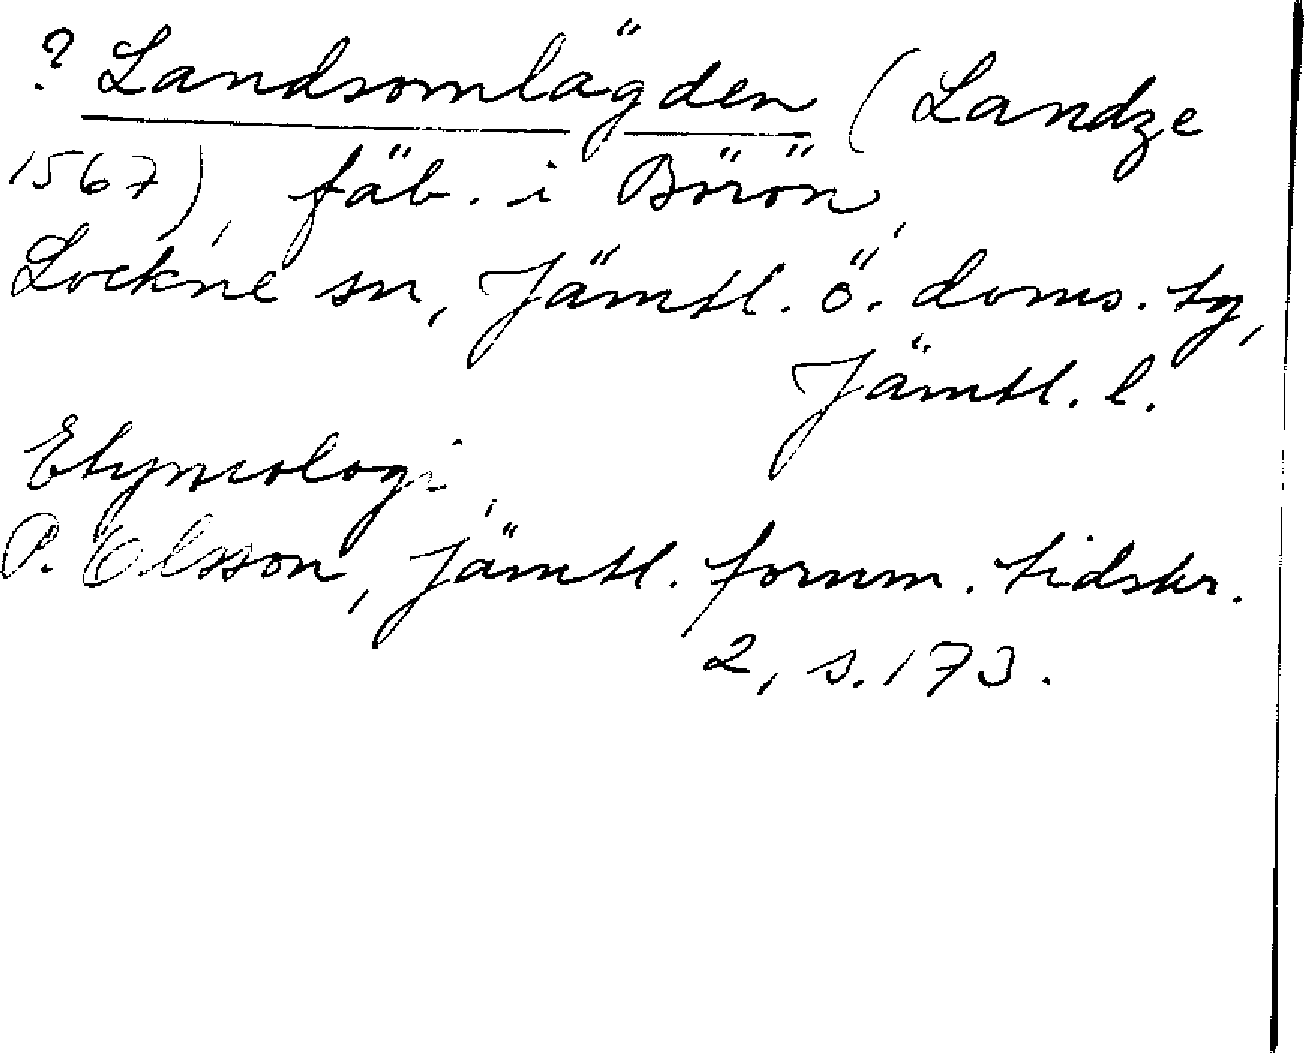 ? Landsomlägden (Landze
1567), fäb. i Börön,
Lockne sn, Jämtl. ö. doms. tg,
Jämtl. l.
Etymologi,
P. Olsson, Jämtl. fornm. tidskr.
2, s. 173.